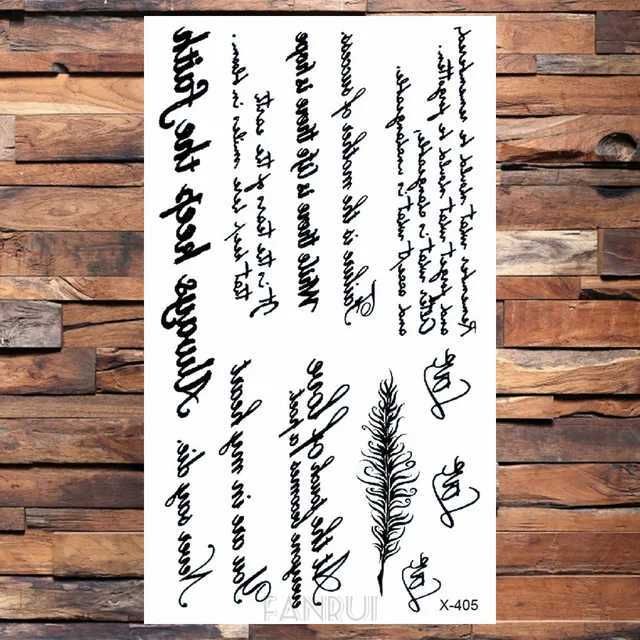 Always keep the Faith
It is the tears of the earth
that keep her smiles in bloom.
While there is life there is hope
Failure is the mother of success
Remember what should be remembered,
and forget what should be forgotten.
Alter what is changeable,
and accept what is unchangeable.
Never say die.
You are in my heart
At the touch of love
everyone becomes a poet
Love
Love
Love
X-405
FANRUI